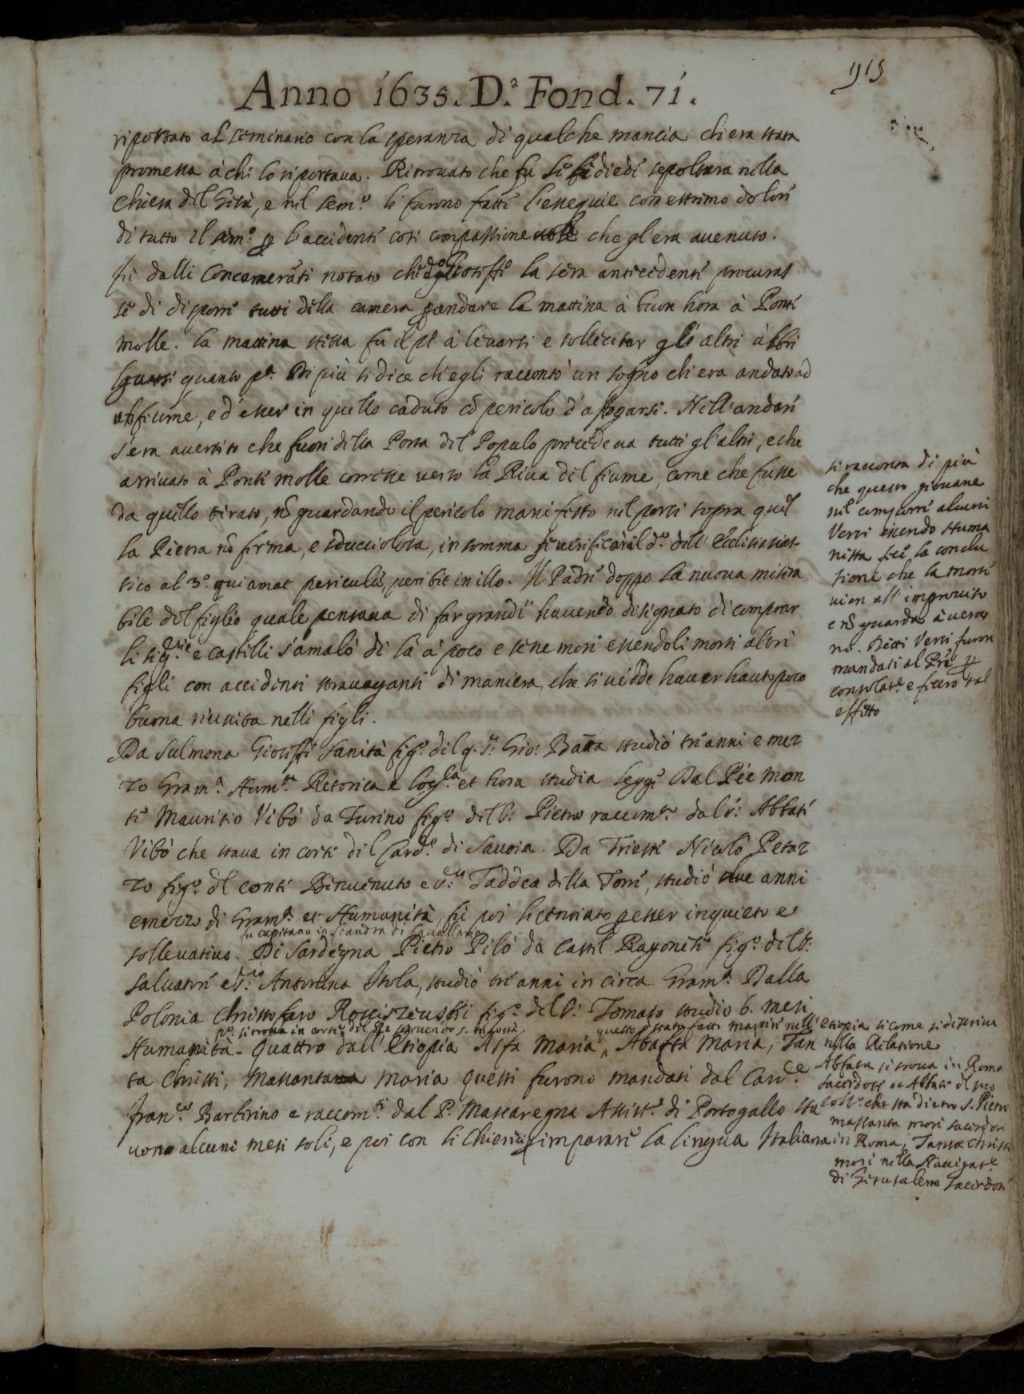 915
Anno 1635. D.ª Fond. 71.
riportato al seminario con la speranza di qualche mancia ch'era stata
promessa à chi lo riportava. Ritrovato che fu se li diedi sepoltura nella
chiesa del Giesù, e nel sem.º li furono fatti l'essequie con estremo dolori
di tutto il sem.º p l'accidenti così compassionevole che gl'era avenuto.
fù dalli Concamerati notato che la sera antecedenti procuras
se di disporre tutti della camera p andare la mattina à buon hora à Ponti
molle. la mattina stessa fu il p.º à levarsi e sollecitar gli altri à
quanto p.ª Di più si dice ch'egli raccontò un sogno ch'era andato ad
fiume, e d'esser in quello caduto cõ pericolo d'afogarsi. Nell'andari
s'era avertito che fuori della Porta del Populo precedeva tutti gl'altri, e che
arrivato à Ponti molle corresse verso la Riva del fiume, come che fusse
da quello tirato, nõ guardando il pericolo manifesto nel porsi sopra quel
la Pietra nõ ferma, e sdrucciolosa, in somma si verificò il d.º dell'Ecclesiast-
tico al 3.º qui amat periculũ peribit in illo. Il Padri doppo la nuova misera
bile del figlio quale pensava di far grandi havendo disignato di comprar
li sig.rie e castelli s'amalò di là à poco e se ne morì essendoli morti altri
figli con accidenti stravaganti di maniera, che si vidde haver hauto poco
buona riuscita nelli figli.
Da Sulmona Gioseffi Sanità fig.º del q. S.r Gio: Batta studiò tre anni e mez
zo Gram.ª Hum.tà Retorica e Log.ca et hora studia leggi Dal Pie mon
ti Mauritio Vibò da Turino fig.º del S.r Pietro raccom.to dal S.r Abbati
Vibò che stava in corti del Card.e di Savoia. Da Triesti Nicolò Petaz
zo fig.º del conti Binvenuto e S.ra Taddea della Torri, studiò due anni
e mezzo di Gram.ª et Humanità, fù poi licentiato p esser inquieto e
fu capitano in Fiandra di Cavallaria
sollevativo. Di Sardegna Pietro Pilò da Castil Ragonesi fig.º del S.r
Salvatori e S.ra Antonina Usola, studiò tre anni in circa Gram.ª Dalla
Polonia Christofaro fig.º del S.r Tomaso studiò 6. mesi
questo è stato fatto martiri nell'Etiopia si come si discrive
Humanità. Quattro dall'Etiopia Asfa Maria, Abatta Maria, Tan nella Relatione
sa Christi, Massanta Maria questi furono mandati dal Car.le
Fran.co Barberino e raccom.ti dal P. Mascaregna Assist.e di Portogallo stet
tero alcuni mesi soli, e poi con li Chierici p imparari la lingua Italiana
si racconta di più
che questo giovane
nel comporri alcuni
Versi essendo Huma
nista fece la conclu
sione che la morti
vien all'improviso
e nõ guarda à veru
no. Detti Versi furon
mandati al Pri p
consolar.e e fecero tal
effetto
Abbata si trova in Roma
sacerdote et Abbati del suo
Coll.º che sta dietro S. Pietro
massanta morì sacerdoti
in Roma, Tansa Christi
morì nella Navigat.e
di Gierusalem sacerdoti